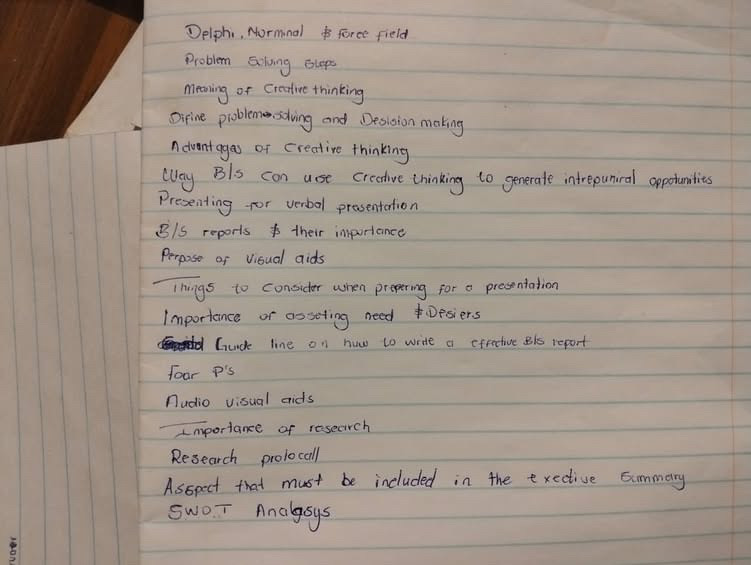 Delphi, Norminal & Force field
Problem Solving Steps
Meaning of Creative thinking
Difine problem solving and Desision making
Advantages of Creative thinking
Way B/s can use Creative thinking to generate intrepuniral oppotunities
Presenting for verbal presentation
B/S reports & their importance
Perpose of Visual aids
Things to Consider when prepering for a presentation
Importance of asseting need & Desiers
Guide line on how to write a effective B/s report
Four P's
Audio visual aids
Importance of research
Research protocall
Asspect that must be included in the exective Summary
S.W.O.T Analysys